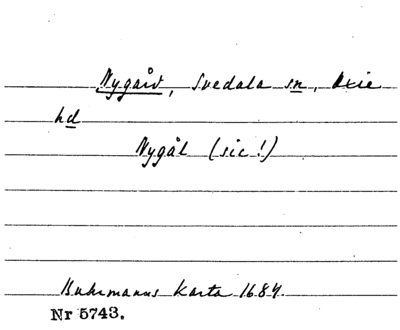 Nygård, Svedala sn, Oxie
hd
Nygål (sic!)
Buhrmanns Karta 1684.
Nr 5743.